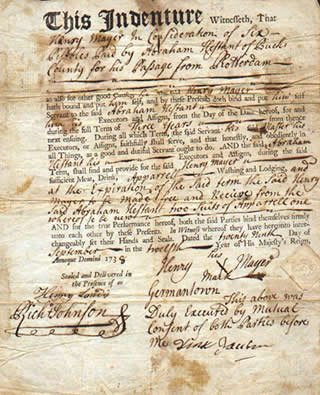 This Indenture Witnesseth, That
Henry Mayer In Consideration of Six
Pistoles Paid by Abraham Hestant of Bucks
County for his Passage from Rotterdam
as also for other good Causes he the said Henry Mayer
hath bound and put himself, and by these Presents doth bind and put himself
Servant to the said Abraham Hestant
Executors and Assigns, from the Day of the Date hereof, for and
during the full Term of Three Years
next ensuing. During all which Term, the said Servant his said Master his
Executors, or Assigns, faithfully shall serve, and that honestly, and obediently in
all Things, as a good and dutiful Servant ought to do. AND the said Abraham
Hestant his Executors and Assigns, during the said
Term, shall find and provide for the said Henry Mayer
sufficient Meat, Drink, Apparrel Washing and Lodging, and
at the Expiration of the said term the said Henry
Mayer to be made free and Receive from the
said Abraham Hestant two Suits of Apparrel one
whereof to be new
AND for the true Performance hereof, both the said Parties bind themselves firmly
unto each other by these Presents. In Witness whereof they have hereunto inter-
changeably set their Hands and Seals. Dated the twenty Ninth Day of
September in the twelfth Year of His Majesty's Reign,
Annoque Domini 1738
his
Henry Mayer
Mark
Sealed and Delivered in
the Presence of us
Rich Johnson
Germantown
This above was
Duly Executed by Mutual
Consent of both the Parties before
me